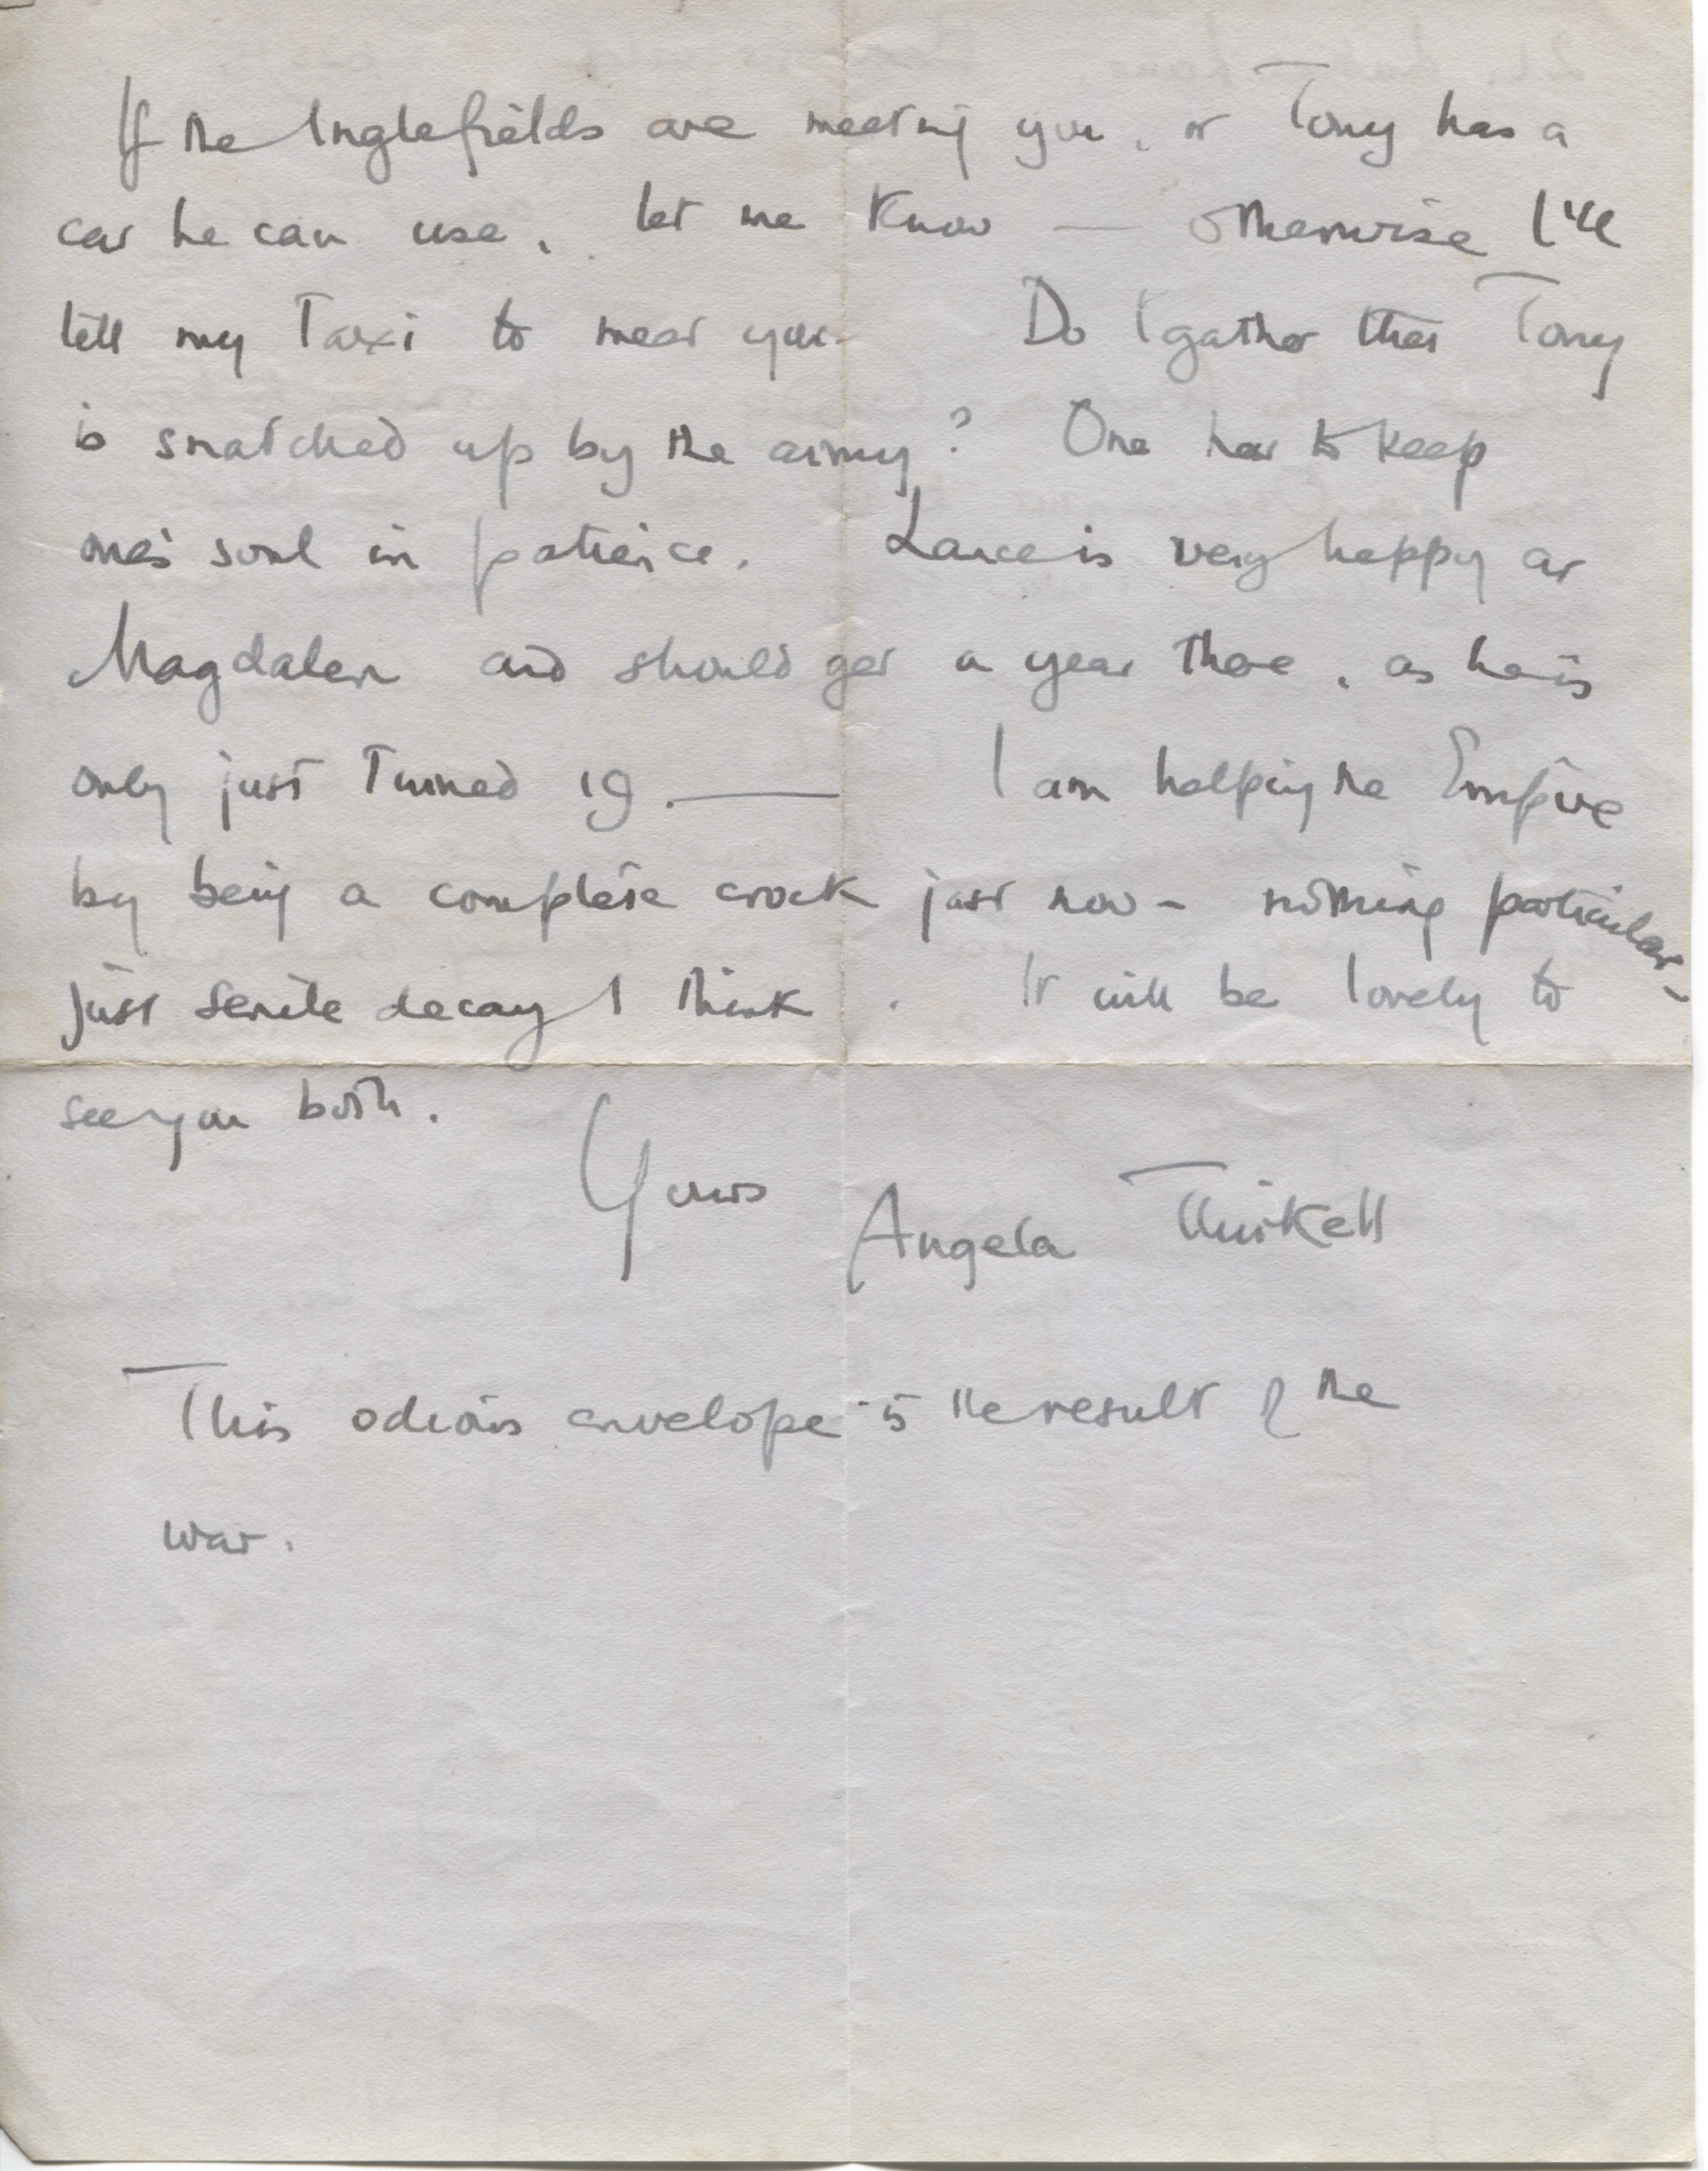 If the Inglefields are meeting you, or Tony has a
car he can use, let me know — otherwise I'll
tell my taxi to meet you. Do I gather that Tony
is snatched up by the army? One has to keep
one's soul in patience. Lance is very happy at
Magdalen and should get a year there, as he is
only just turned 19. — I am helping the Empire
by being a complete crock just now - nothing particular -
just senile decay I think. It will be lovely to
see you both.
Yours
Angela Thirkell
This odious envelope is the result of the
war.